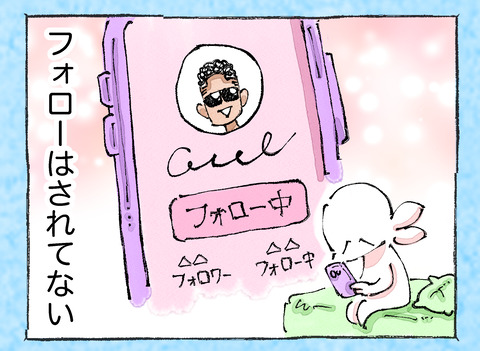 フォローはされてない
フォロー中
△△
フォロワー
△△
フォロー中